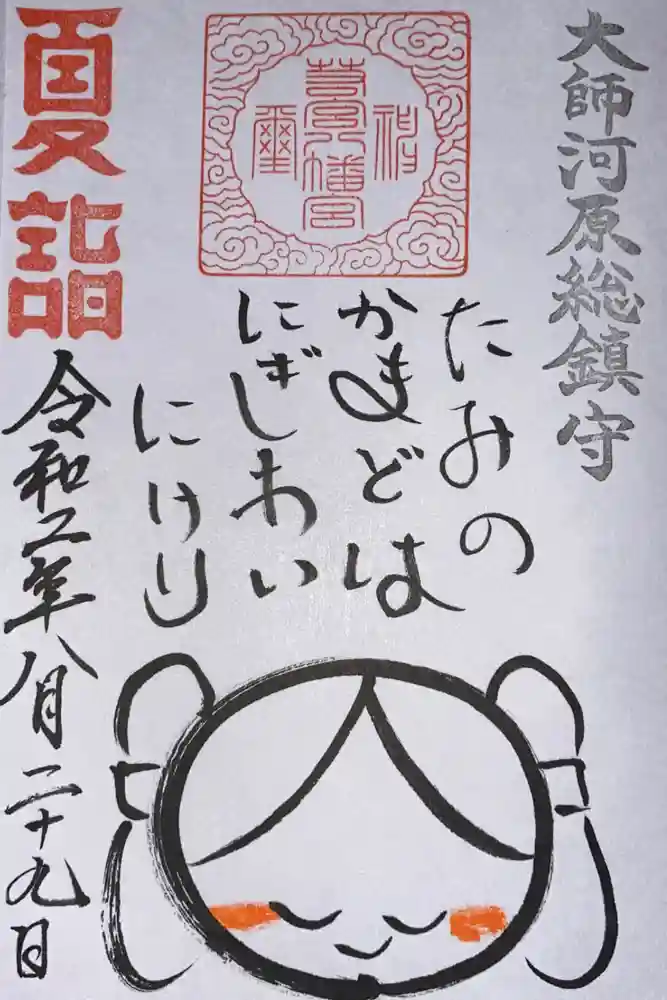 大師河原総鎮守
神
若宮八幡宮
璽
たみの
かまどは
にぎわい
にけり
夏詣
令和二年八月二十九日